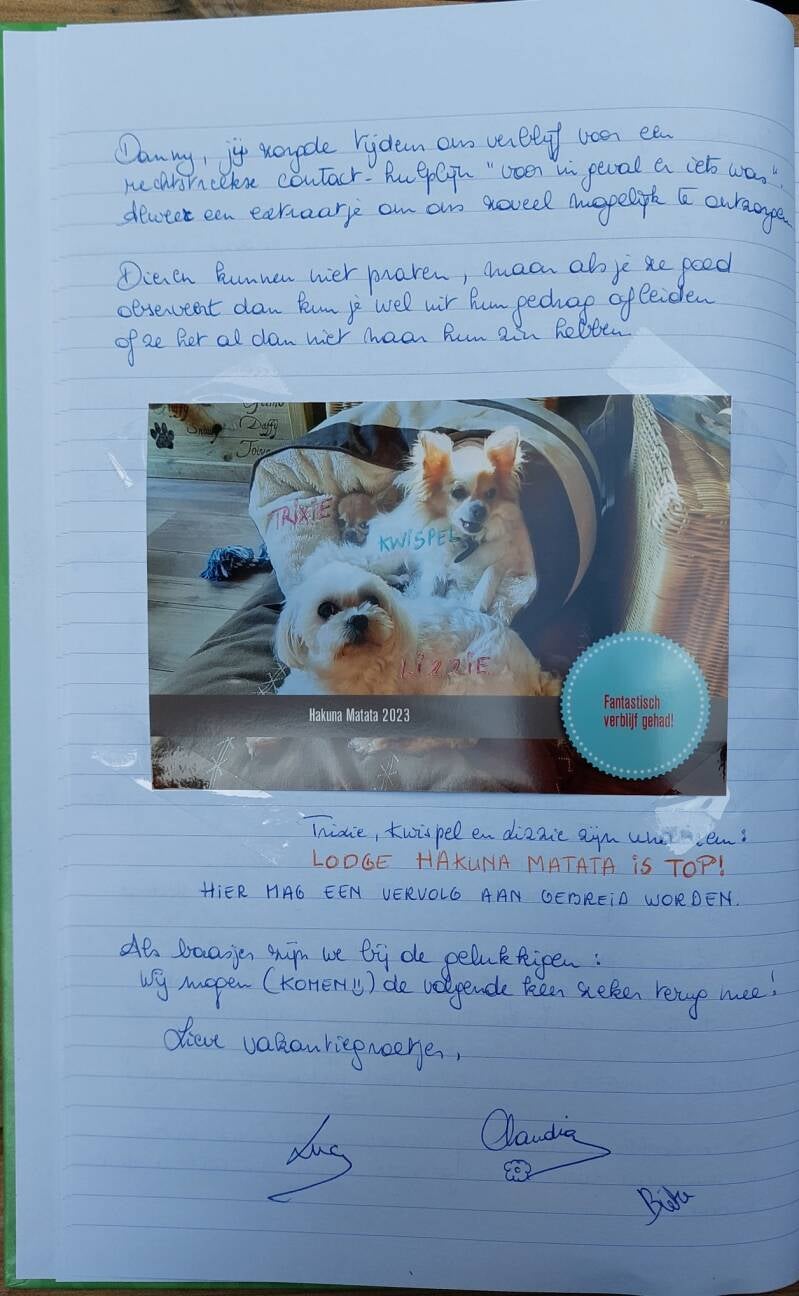 Danny, jij zorgde tijdens ons verblijf voor een
rechtstreekse contact-hulplijn "voor in geval er iets was".
Alweer een extraatje om ons zoveel mogelijk te ontzorgen
Dieren kunnen niet praten, maar als je ze goed
observeert dan kun je wel uit hun gedrag afleiden
of ze het al dan niet naar hun zin hebben
Snowy Daffy
TRIXIE
KWISPEL
LIZZIE
Hakuna Matata 2023
Fantastisch
verblijf gehad!
Trixie, Kwispel en Lizzie zijn
LODGE HAKUNA MATATA IS TOP!
HIER MAG EEN VERVOLG AAN GEBREID WORDEN.
Als baasjes zijn we bij de gelukkigen:
Wij mogen (KOMEN) de volgende keer zeker terug mee!
Lieve vakantiegroetjes,
Luc
Claudia